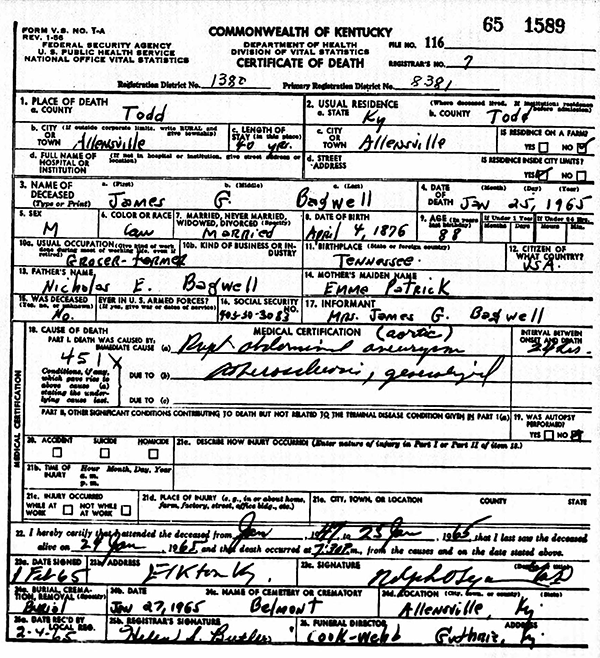 65 1589
FORM V.S. NO. 1-A
REV. 1-56
FEDERAL SECURITY AGENCY
U. S. PUBLIC HEALTH SERVICE
NATIONAL OFFICE VITAL STATISTICS
COMMONWEALTH OF KENTUCKY
DEPARTMENT OF HEALTH
DIVISION OF VITAL STATISTICS
CERTIFICATE OF DEATH
FILE NO. 116
REGISTRAR'S NO. 7
Registration District No. 1380 Primary Registration District No. 8381
1. PLACE OF DEATH
a. COUNTY Todd
2. USUAL RESIDENCE (Where deceased lived. If institution: residence before admission)
a. STATE Ky b. COUNTY Todd
b. CITY (If outside corporate limits, write RURAL and give township)
OR TOWN Allensville
c. LENGTH OF STAY (in this place) 40 yrs.
c. CITY OR TOWN Allensville
IS RESIDENCE ON A FARM?
YES NO
d. FULL NAME OF HOSPITAL OR INSTITUTION (If not in hospital or institution, give street address or
d. STREET ADDRESS
IS RESIDENCE INSIDE CITY LIMITS?
YES NO
3. NAME OF DECEASED (Type or Print)
a. (First) b. (Middle) c. (Last)
James G. Bagwell
4. DATE OF DEATH (Month) (Day) (Year)
Jan 25, 1965
5. SEX M
6. COLOR OR RACE Cau
7. MARRIED, NEVER MARRIED, WIDOWED, DIVORCED (Specify) Married
8. DATE OF BIRTH April 4, 1876
9. AGE (In years last birthday) 88
If Under 1 Year Months Days
If Under 24 Hrs. Hours Min.
10a. USUAL OCCUPATION (Give kind of work done during most of working life, even if retired)
Grocer-Farmer
10b. KIND OF BUSINESS OR INDUSTRY
11. BIRTHPLACE (State or foreign country)
Tennessee
12. CITIZEN OF WHAT COUNTRY? USA.
13. FATHER'S NAME
Nicholas E. Bagwell
14. MOTHER'S MAIDEN NAME
Emma Patrick
15. WAS DECEASED EVER IN U. S. ARMED FORCES?
(Yes, no, or unknown) (If yes, give war or dates of service)
No.
16. SOCIAL SECURITY NO.
17. INFORMANT
Mrs. James G. Bagwell
MEDICAL CERTIFICATION
18. CAUSE OF DEATH
MEDICAL CERTIFICATION (aortic)
INTERVAL BETWEEN ONSET AND DEATH
PART I. DEATH WAS CAUSED BY:
IMMEDIATE CAUSE (a) Rupt abdominal aneurysm
451X
Conditions, if any, which gave rise to above cause (a) stating the underlying cause last.
DUE TO (b) atherosclerosis, generalized
DUE TO (c)
PART II. OTHER SIGNIFICANT CONDITIONS CONTRIBUTING TO DEATH BUT NOT RELATED TO THE TERMINAL DISEASE CONDITION GIVEN IN PART 1(a)
19. WAS AUTOPSY PERFORMED?
YES NO
20. ACCIDENT SUICIDE HOMICIDE
21a. DESCRIBE HOW INJURY OCCURRED (Enter nature of injury in Part I or Part II of item 18.)
21b. TIME OF INJURY Hour Month, Day, Year
a. m.
p. m.
21c. INJURY OCCURRED
WHILE AT WORK NOT WHILE AT WORK
21d. PLACE OF INJURY (e. g., in or about home, farm, factory, street, office bldg., etc.)
21e. CITY, TOWN, OR LOCATION COUNTY STATE
22. I hereby certify that I attended the deceased from Jan 1947, to 25 Jan, 1965, that I last saw the deceased
alive on 24 Jan, 1965, and that death occurred at m., from the causes and on the date stated above.
23a. DATE SIGNED
1 Feb 65
23b. ADDRESS
Elkton Ky
23c. SIGNATURE
24a. BURIAL, CREMATION, REMOVAL (Specify)
Burial
24b. DATE
Jan 27, 1965
24c. NAME OF CEMETERY OR CREMATORY
Belmont
24d. LOCATION (City, town, or county) (State)
Allensville, Ky.
25a. DATE REC'D BY LOCAL REG.
2-4-65
25b. REGISTRAR'S SIGNATURE
Helen S. Butler
26. FUNERAL DIRECTOR ADDRESS
Cook-Webb Guthrie, Ky.